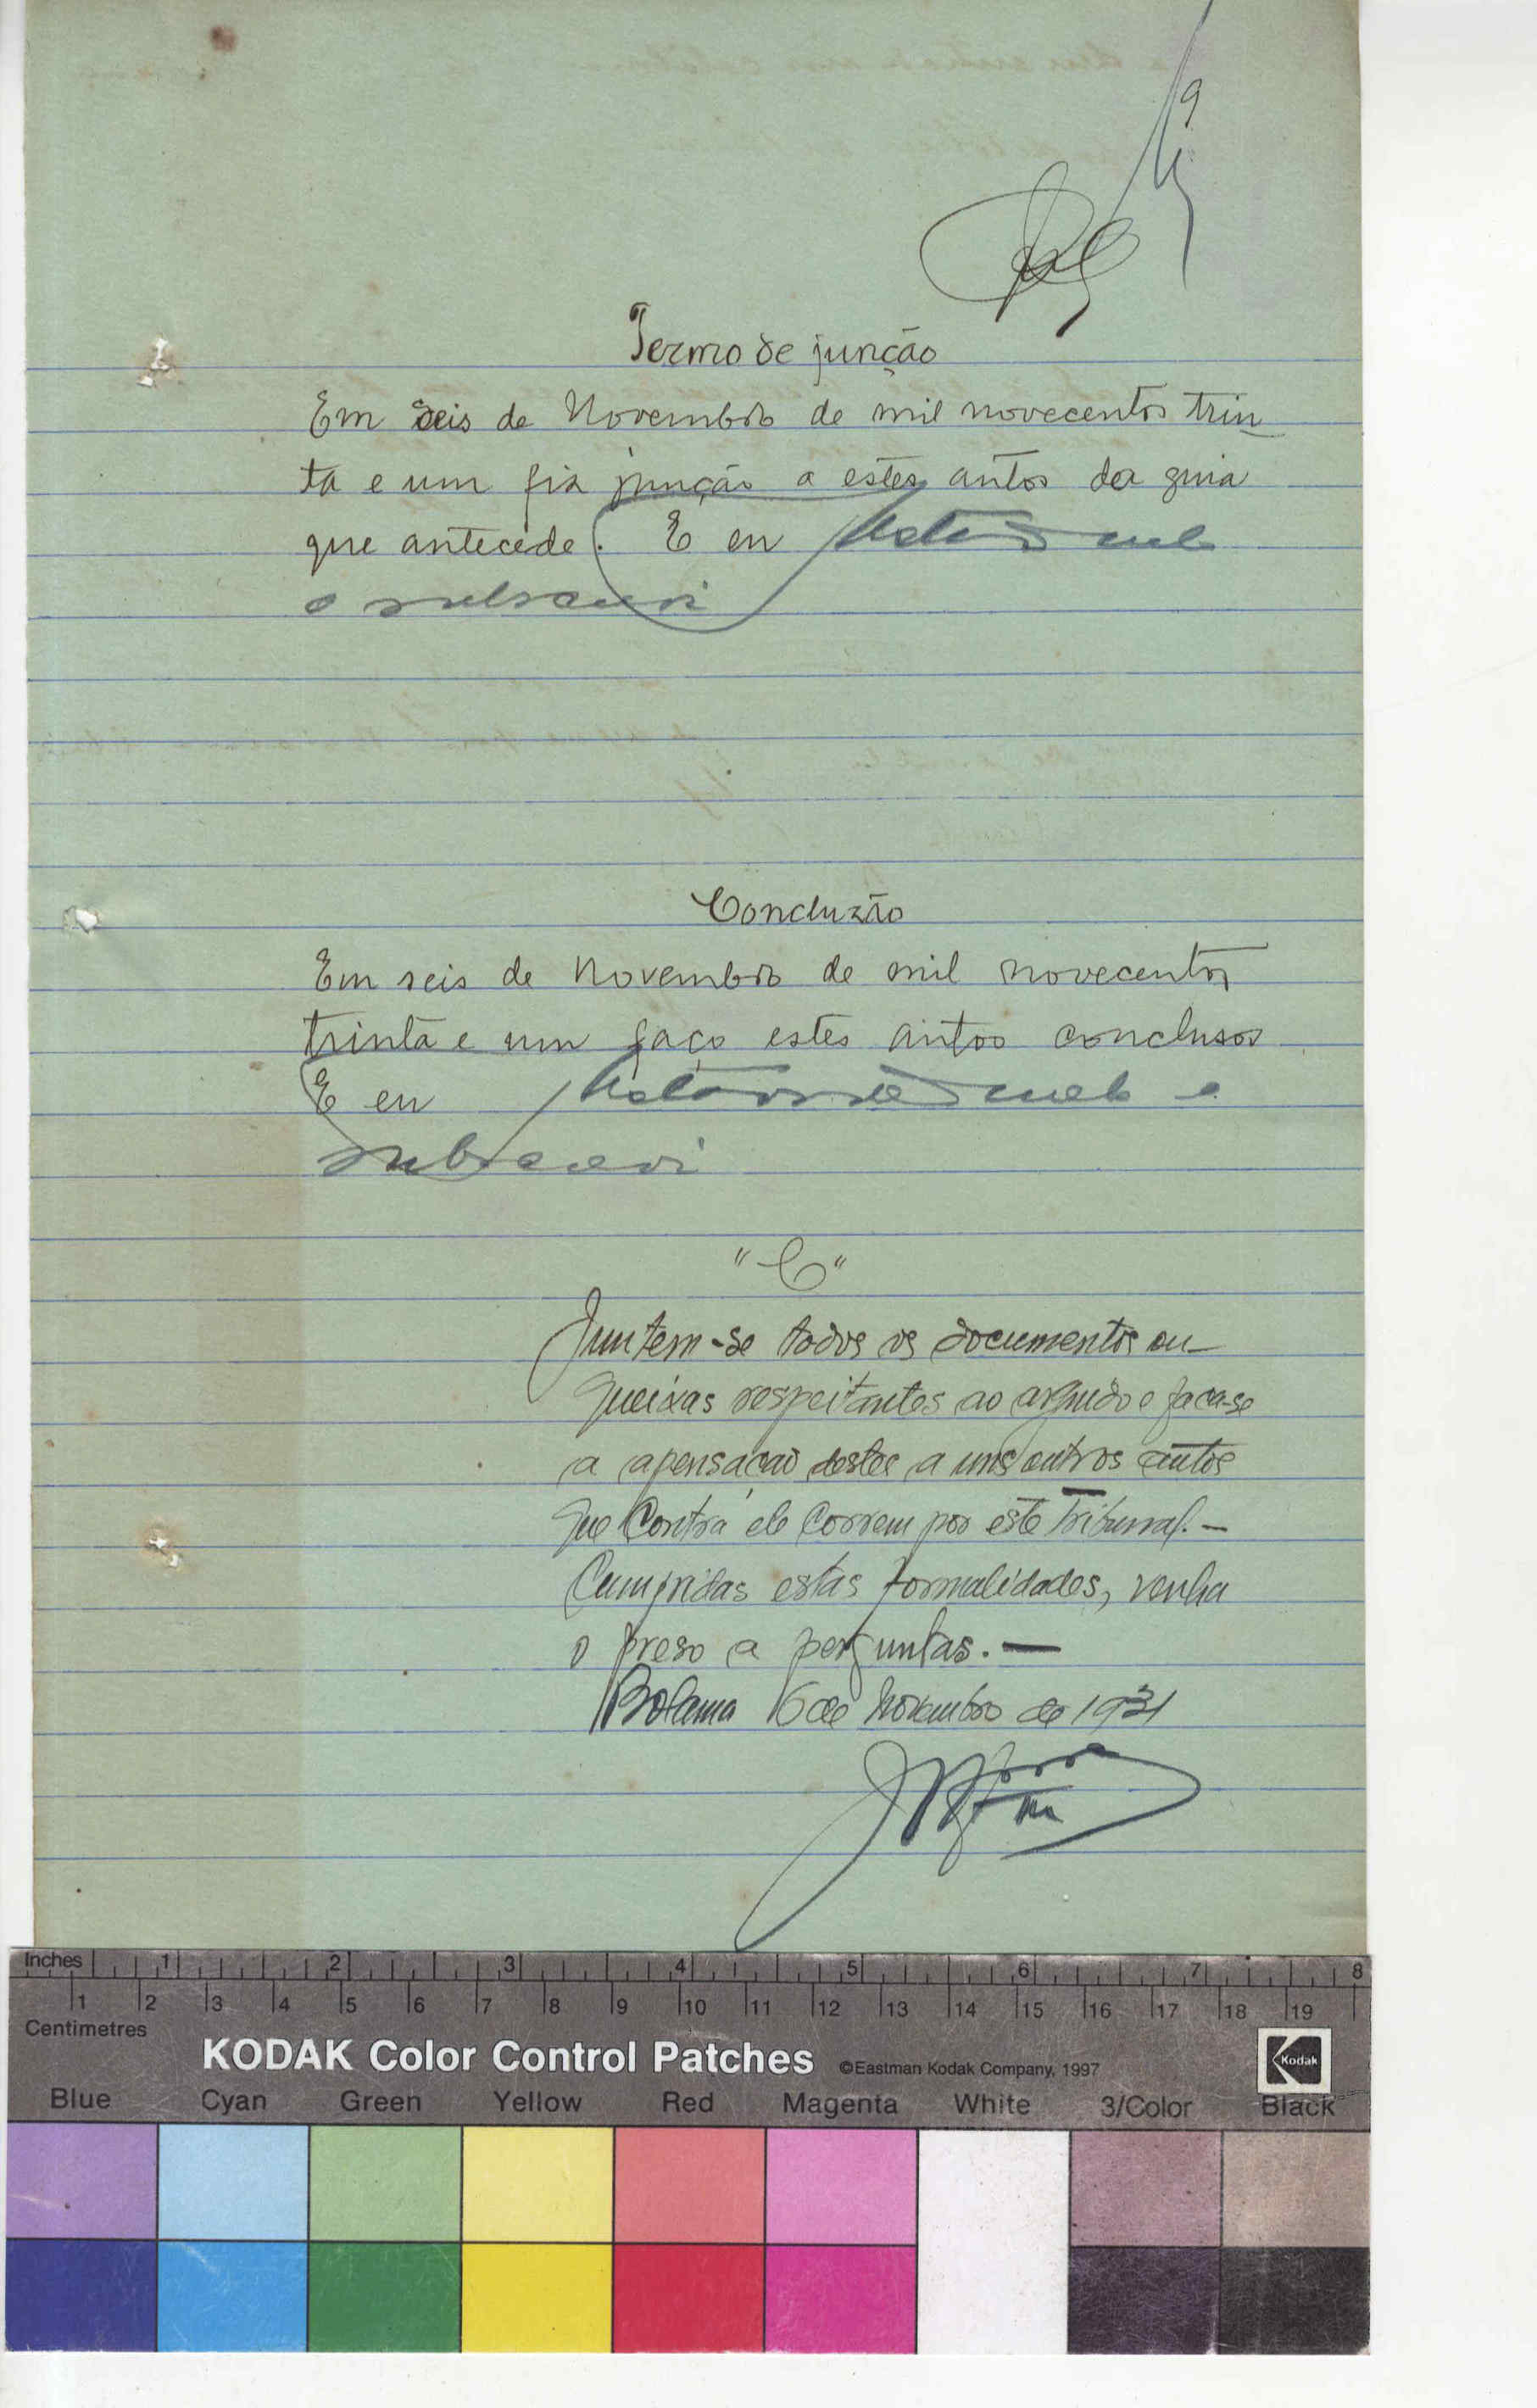 9
Termo de junção
Em seis de Novembro de mil novecentos trin
ta e um fiz junção a estes autos da guia
que antecede. E eu
o subscrevi
Concluzão
Em seis de Novembro de mil novecentos
trinta e um faço estes autos conclusos
E eu o
subscrevi
"C"
Juntem-se todos os documentos ou
queixas respeitantes ao arguido e faça-se
a apensação destes a uns outros autos
que contra ele correm por este Tribunal.—
Cumpridas estas formalidades, venha
o preso a perguntas.—
Bolama 6 de Novembro de 1931
Inches 1 2 3 4 5 6 7 8
1 2 3 4 5 6 7 8 9 10 11 12 13 14 15 16 17 18 19
Centimetres
KODAK Color Control Patches ©Eastman Kodak Company, 1997 Kodak
Blue Cyan Green Yellow Red Magenta White 3/Color Black